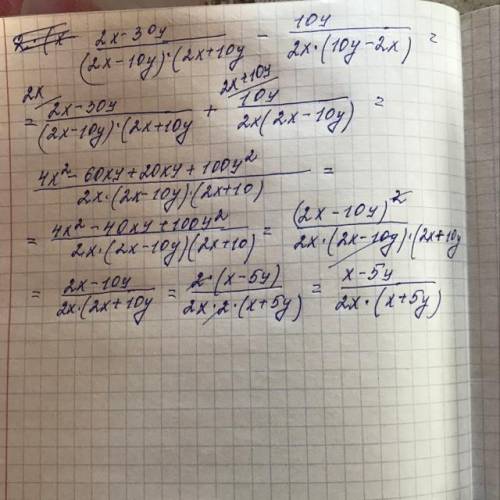 2·(x (2x-30y)/((2x-10y)·(2x+10y) - 10y/(2x·(10y-2x)) =
= 2x/ (2x-30y)/((2x-10y)·(2x+10y) + 2x+10y/ 10y/(2x(2x-10y)) =
(4x²-60xy+20xy+100y²)/(2x·(2x-10y)(2x+10)) =
= (4x²-40xy+100y²)/(2x·(2x-10y)(2x+10)) = (2x-10y)²/(2x·(2x-10y)·(2x+10y)
= (2x-10y)/(2x·(2x+10y) = (2·(x-5y))/(2x·2·(x+5y)) = (x-5y)/(2x·(x+5y))